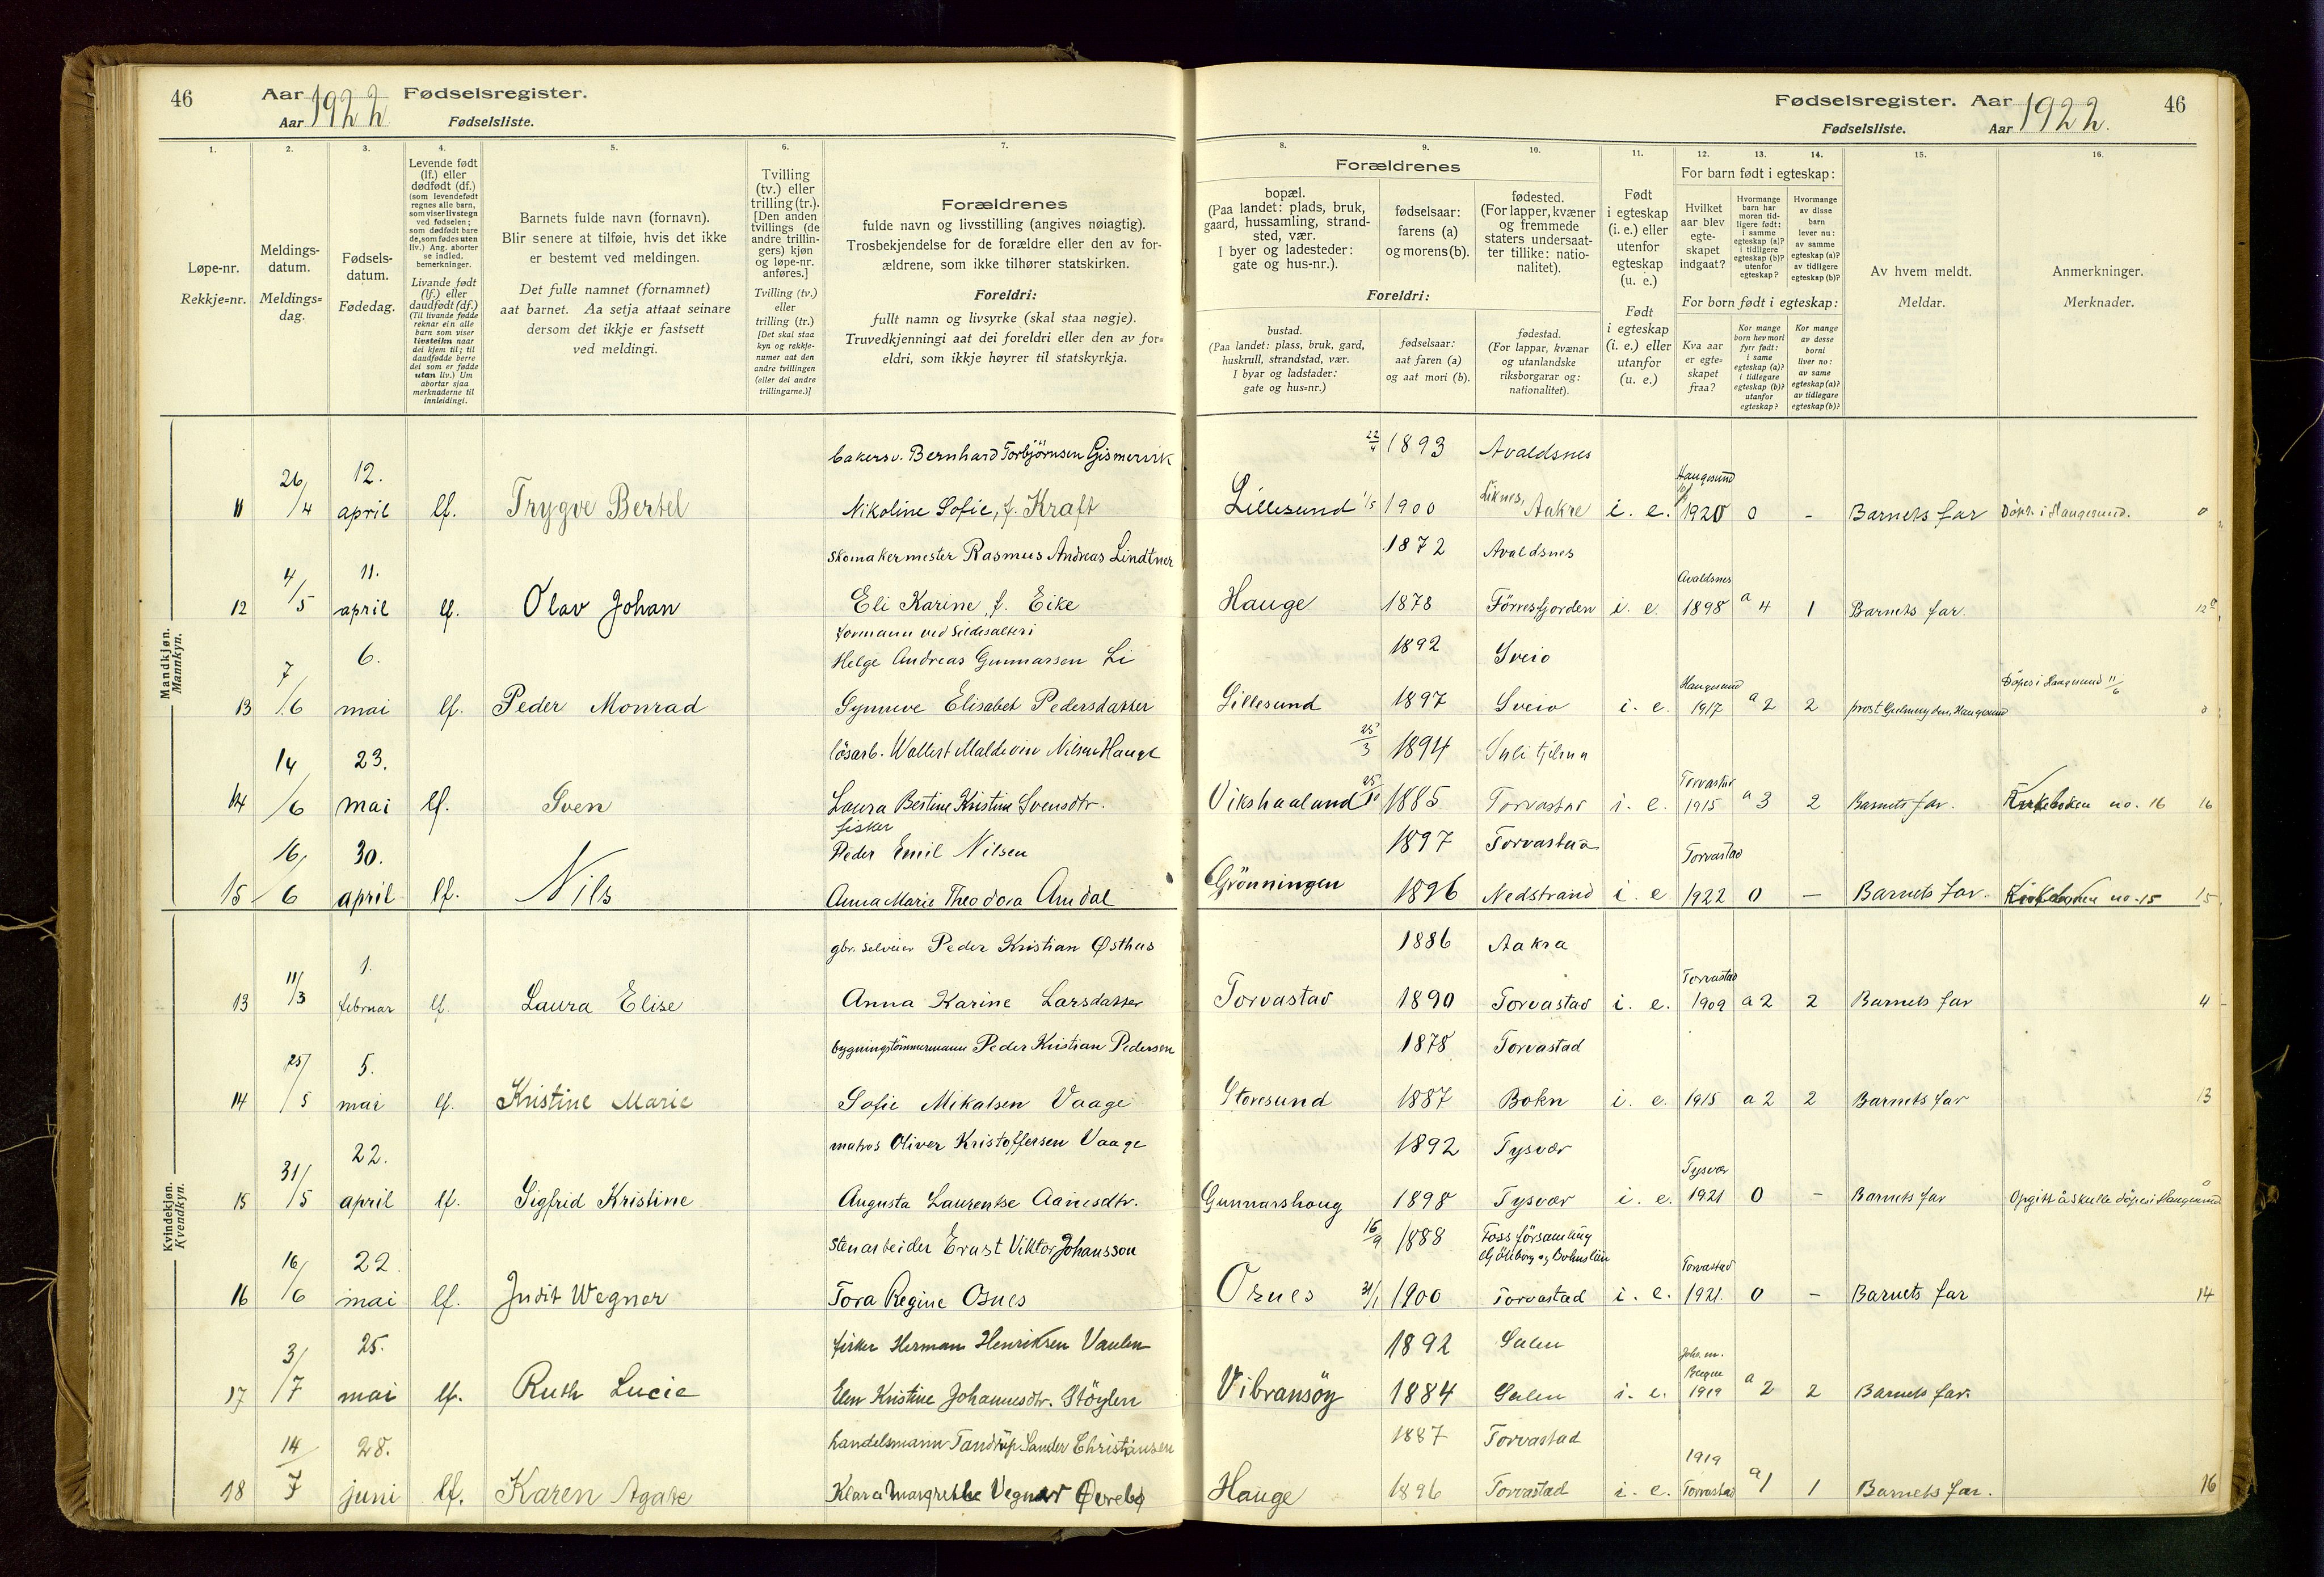 46 Aar 1922 Fødselsregister.
Aar Fødselsliste.
Fødselsregister. Aar 1922. 46
Fødselsliste. Aar
1. 2. 3. 4. 5. 6. 7. 8. 9. 10. 11. 12. 13. 14. 15. 16.
Løpe-nr.
Rekkje=nr.
Meldings-
datum.
Meldings=
dag.
Fødsels-
datum.
Fødedag.
Levende født
(lf.) eller
dødfødt (df.)
(som levendefødt
regnes alle barn,
som viser livstegn
ved fødselen;
som dødfødt bare
de, som fødes uten
liv.) Ang. aborter
se indled.
bemerkninger.
Livande født
(lf.) eller
daudfødt (df.)
(Til livande fødde
reknar ein alle
barn som viser
livsteikn naar
dei kjem til; til
daudfødde berre
dei som er fødde
utan liv.) Um
abortar sjaa
merknaderne til
innleidingi.
Barnets fulde navn (fornavn).
Blir senere at tilføie, hvis det ikke
er bestemt ved meldingen.
Det fulle namnet (fornamnet)
aat barnet. Aa setja attaat seinare
dersom det ikkje er fastsett
ved meldingi.
Tvilling
(tv.) eller
trilling (tr.).
[Den anden
tvillings (de
andre trillin-
gers) kjøn
og løpe-nr.
anføres.]
Tvilling (tv.)
eller
trilling (tr.)
[Det skal staa
kyn og rekkje-
numer aat den
andre tvillingen
(eller dei andre
trillingarne.)]
Forældrenes
fulde navn og livsstilling (angives nøiagtig).
Trosbekjendelse for de forældre eller den av for-
ældrene, som ikke tilhører statskirken.
Foreldri:
fullt namn og livsyrke (skal staa nøgje).
Truvedkjenningi aat dei foreldri eller den av for=
eldri, som ikkje høyrer til statskyrkja.
Forældrenes
bopæl.
(Paa landet: plads, bruk,
gaard, hussamling, strand-
sted, vær.
I byer og ladesteder:
gate og hus-nr.).
fødselsaar:
farens (a)
og morens (b).
fødested.
(For lapper, kvæner
og fremmede
staters undersaat-
ter tillike: natio-
nalitet).
Foreldri:
bustad.
(Paa landet: plass, bruk, gard,
huskrull, strandstad, vær.
I byar og ladstader:
gate og hus-nr.)
fødselsaar:
aat faren (a)
og aat mori (b).
fødestad.
(For lappar, kvænar
og utanlandske
riksborgarar og:
nationalitet).
Født
i egteskap
(i. e.) eller
utenfor
egteskap
(u. e.)
Født
i egteskap
(i. e.) eller
utanfor
(u. e.)
For barn født i egteskap:
Hvilket
aar blev
egte-
skapet
indgaat?
Hvormange
barn har
moren tid-
ligere født:
i samme
egteskap (a)?
i tidligere
egteskap (b)?
utenfor
egteskap?
Hvormange
av disse
barn
lever nu:
av samme
egteskap (a)?
av tidligere
egteskap (b)?
For born født i egteskap:
Kva aar
er egte-
skapet
fraa?
Kor mange
born hev mori
fyrr født:
i same
egteskap (a)?
i tidlegare
egteskap (b)?
utanfor
egteskap?
Kor mange
av desse
borni
liver no:
av same
egteskap (a)?
av tidlegare
egteskap (b)?
Av hvem meldt.
Meldar.
Anmerkninger.
Merknader.
Mandkjøn.
Mannkyn.
bakersv. Bernhard Torbjørnsen Gismervik 22/4 1893 Avaldsnes
11 26/4 12. april lf. Trygve Bertel Nikoline Sofie, f. Kraft Lillesund 1/5 1900 Liknes, Aakre i. e. Haugesund 1920 0 - Barnets far Döpt i Haugesund. 0
skomakermester Rasmus Andreas Lindtner 1872 Avaldsnes
12 4/5 11. april lf. Olav Johan Eli Karine f. Eike Hauge 1878 Förresfjorden i. e. Avaldsnes 1898 a 4 1 Barnets far. 12
formann ved sildesalteri
Helge Andreas Gunnarsen Li 1892 Sveio
13 7/6 6. mai lf. Peder Monrad Synneve Elisabet Pedersdatter Lillesund 1897 Sveio i. e. Haugesund 1917 a 2 2 prost Haugesund Döpes i Haugesund 11/6
lösarb. Wollert Maldevin Nilsen Hauge 25/3 1894
14 14/6 23. mai lf. Sven Laura Bertine Kristine Svensdtr. Vikshaaland 1885 Torvastad i. e. Torvastad 1915 a 3 2 Barnets far. Kirkeboken no. 16 16
fisker
Peder Emil Nilsen 1897 Torvastad
15 16/6 30. april lf. Nils Anna Marie Theodora Amdal Grönningen 1896 Nedstrand i. e. Torvastad 1922 0 — Barnets far. Kirkeboken no. 15 15
Kvindekjøn.
Kvendkyn.
gbr. selveier Peder Kristian Østhus 1886 Aakra
13 11/3 1. februar lf. Laura Elise Anna Karine Larsdatter Torvastad 1890 Torvastad i. e. Torvastad 1909 a 2 2 Barnets far 4
bygningstömmermann Peder Kristian Pedersen 1878 Torvastad
14 25/5 5. mai lf. Kristine Marie Sofie Mikalsen Vaage Storesund 1887 Bokn i. e. 1915 a 2 2 Barnets far 13
matros Oliver Kristoffersen Vaage 1892 Tysvær
15 31/5 22. april lf. Sigfrid Kristine Augusta Laurentse Aanesdtr. Gunnarshaug 1898 Tysvær i. e. Tysvær 1921 0 - Barnets far Opgitt å skulle döpes i Haugesund 0
Stenarbeider Ernst Viktor Johansson 16/9 1888 Foss församling Göteborg og Bohuslän
16 16/6 22. mai lf. Judit Wegner Tora Regine Osnes Osnes 31/1 1900 Torvastad i. e. Torvastad 1921. 0 - Barnets far 14
fisker Herman Henriksen Vaulen 1892 Sulen
17 3/7 25. mai lf. Ruth Lucie Elen Kristine Johannesdtr. Stöylen Vibransöy 1884 Sulen i. e. Joh. m. Bergen 1919 a 2 2 Barnets far.
handelsmann Tandrup Sander Christiansen 1887 Torvastad
18 14/7 28. juni lf. Karen Agate Klara Margrethe Vegner Øvrebø Hauge 1896 Torvastad i. e. 1919 Torvastad a 1 1 Barnets far. 16